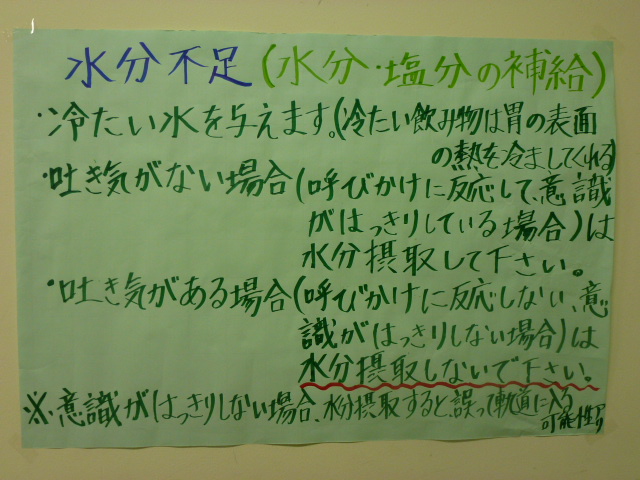 水分不足(水分・塩分の補給)
・冷たい水を与えます。(冷たい飲み物は胃の表面
の熱を冷ましてくれる)
・吐き気がない場合(呼びかけに反応して、意識
がはっきりしている場合)は
水分摂取して下さい。
・吐き気がある場合(呼びかけに反応しない、意
識がはっきりしない場合)は
水分摂取しないで下さい。
※意識がはっきりしない場合、水分摂取すると、誤って軌道に入る
可能性あり